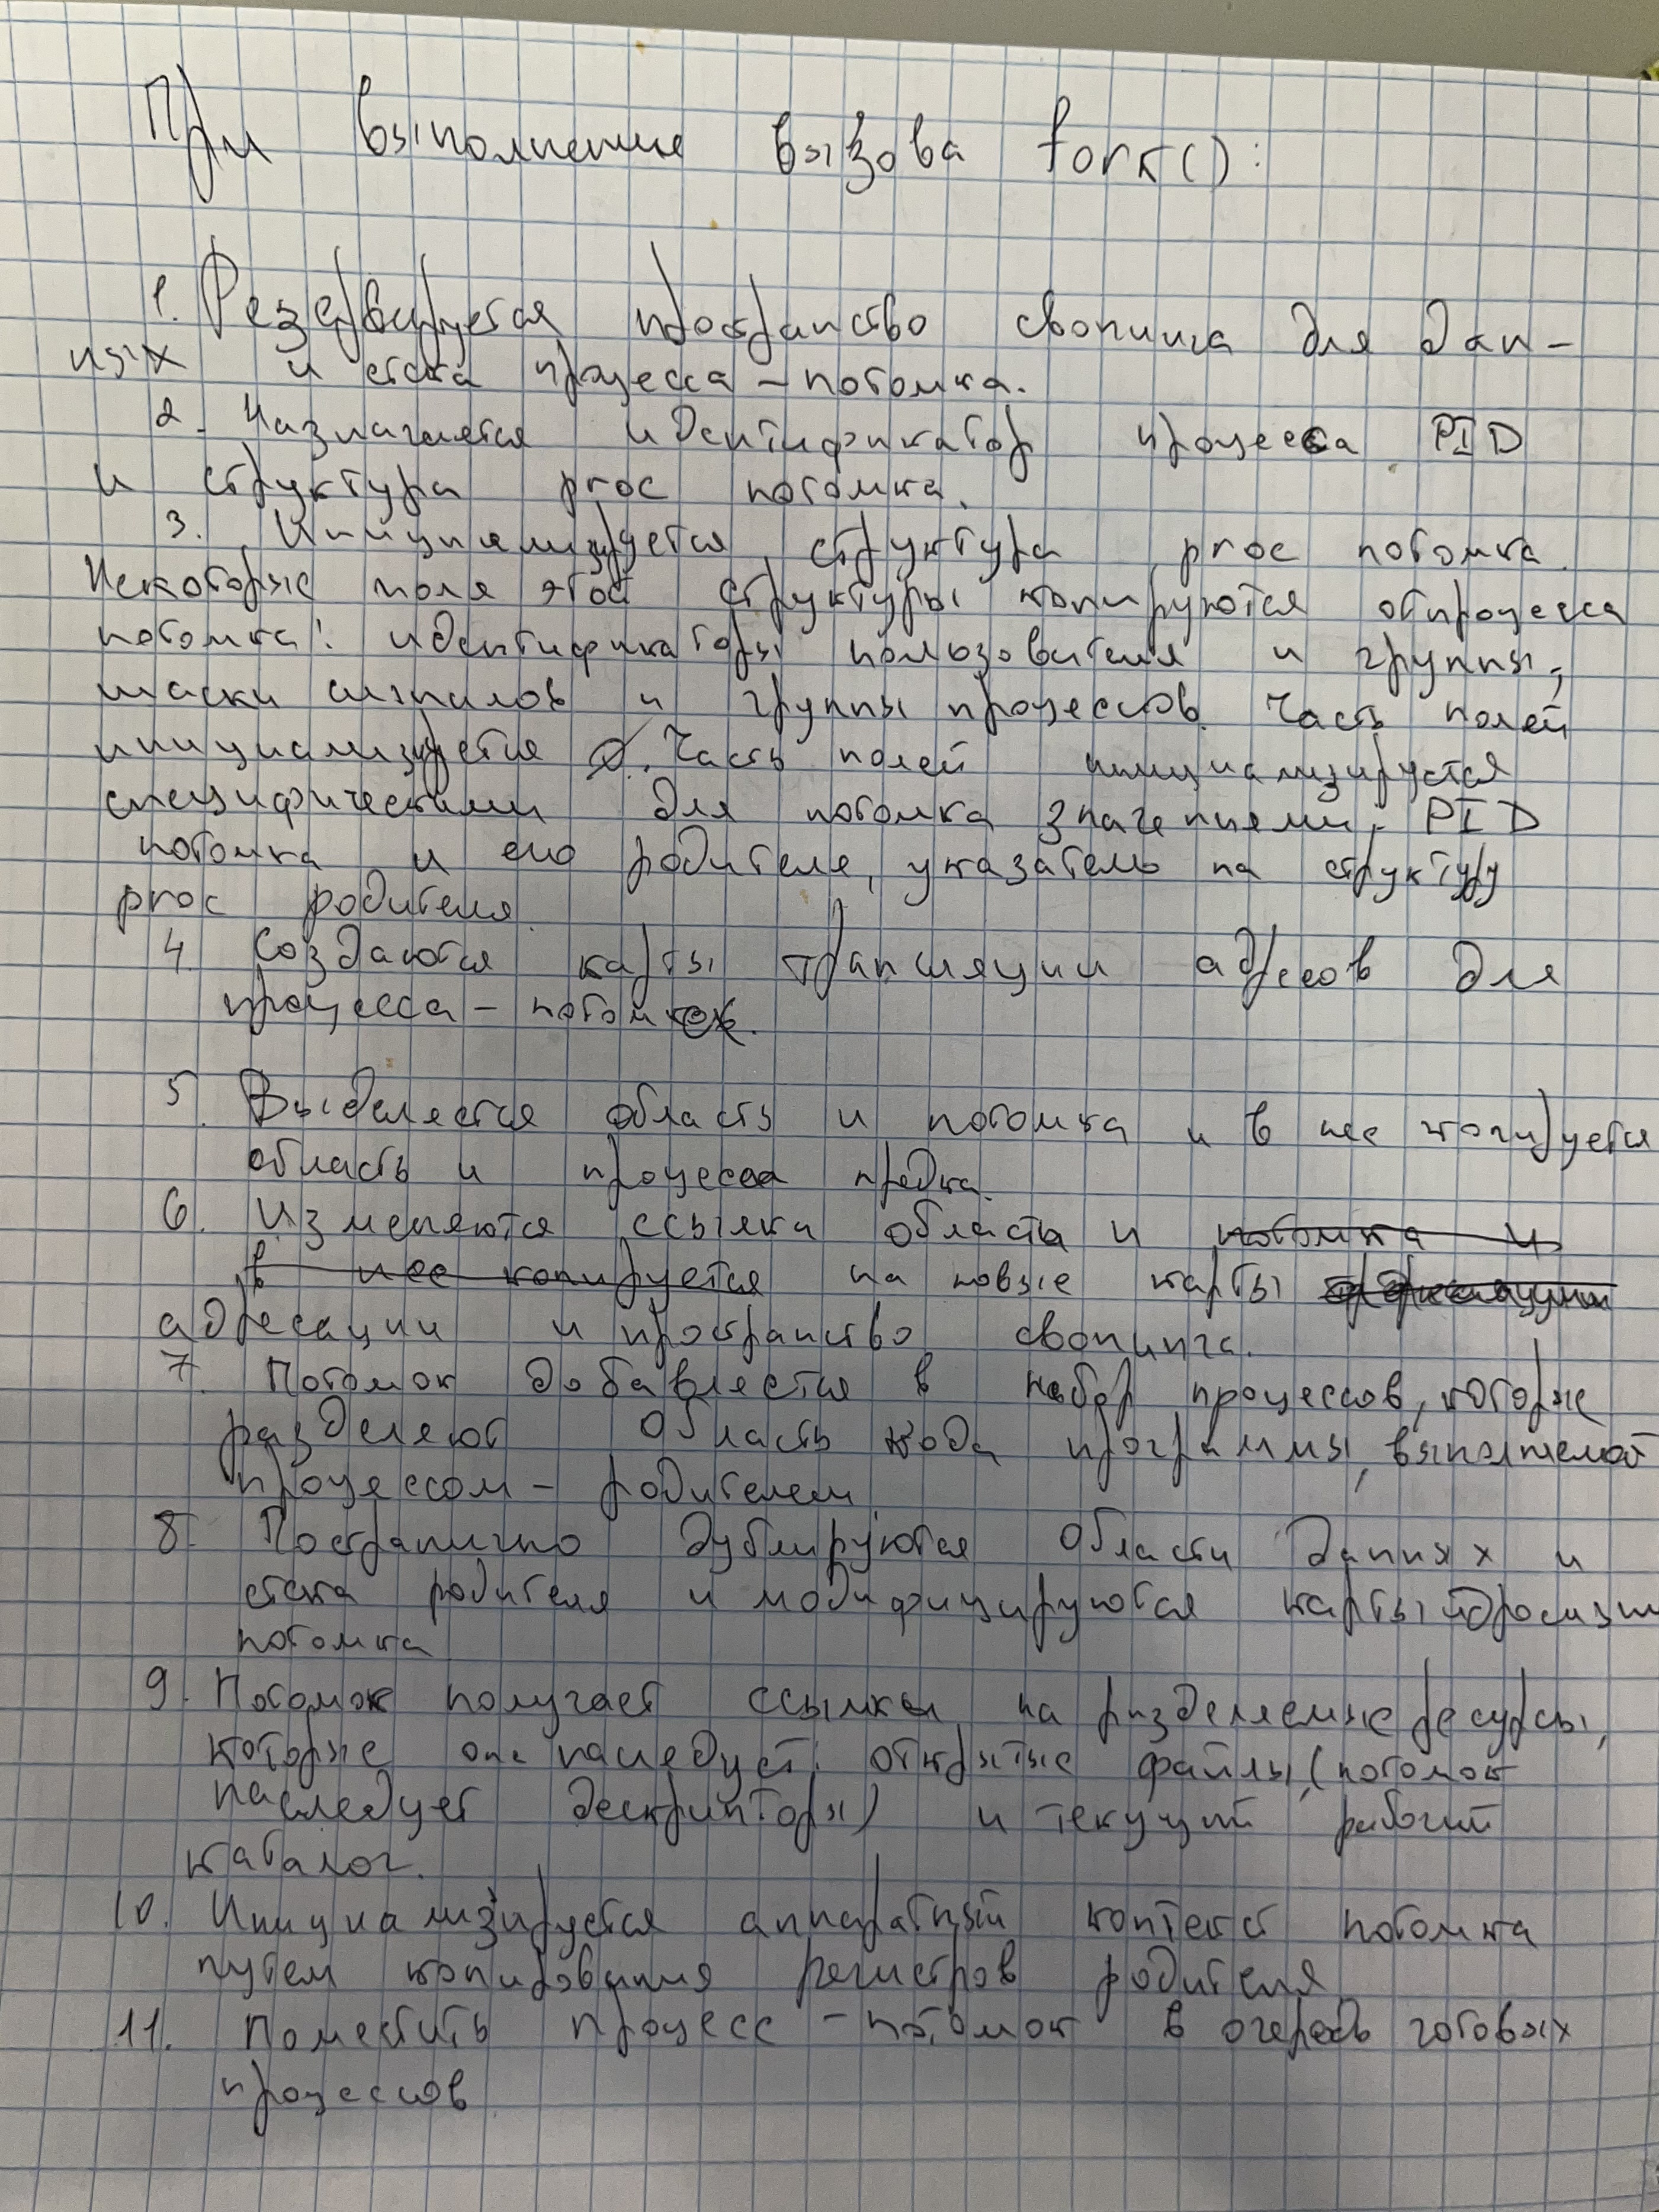 При выполнение вызова fork():
1. Резервируется пространство свопинга для дан-
ных и стека процесса - потомка.
2. Назначается идентификатор процесса PID
и структура proc потомка.
3. Инициализируется структура proc потомка.
Некоторые поля этой структуры копируются от процесса
потомка: идентификаторы пользователя и группы,
маски сигналов и группы процессов. Часть полей
инициализируется 0. Часть полей инициализируется
специфическими для потомка значениями: PID
потомка и его родителя, указатель на структуру
proc родителя.
4. Создаются карты трансляции адресов для
процесса - потомка.
5. Выделяется область u потомка и в нее копируется
область u процесса предка.
6. Изменяются ссылка области u потомка и
в нее копируется на новые карты
адресации и пространство свопинга.
7. Потомок добавляется в набор процессов, которые
разделяют область кода программы, выполняемой
процессом - родителем
8. Постранично дублируются области данных и
стека родителя и модифицируются карты адресации
потомка
9. Потомок получает ссылки на разделяемые ресурсы,
которые он наследует: открытые файлы (потомок
наследует дескрипторы) и текущий рабочий
каталог.
10. Инициализируется аппаратный контекст потомка
путем копирования регистров родителя
11. Поместить процесс - потомок в очередь готовых
процессов